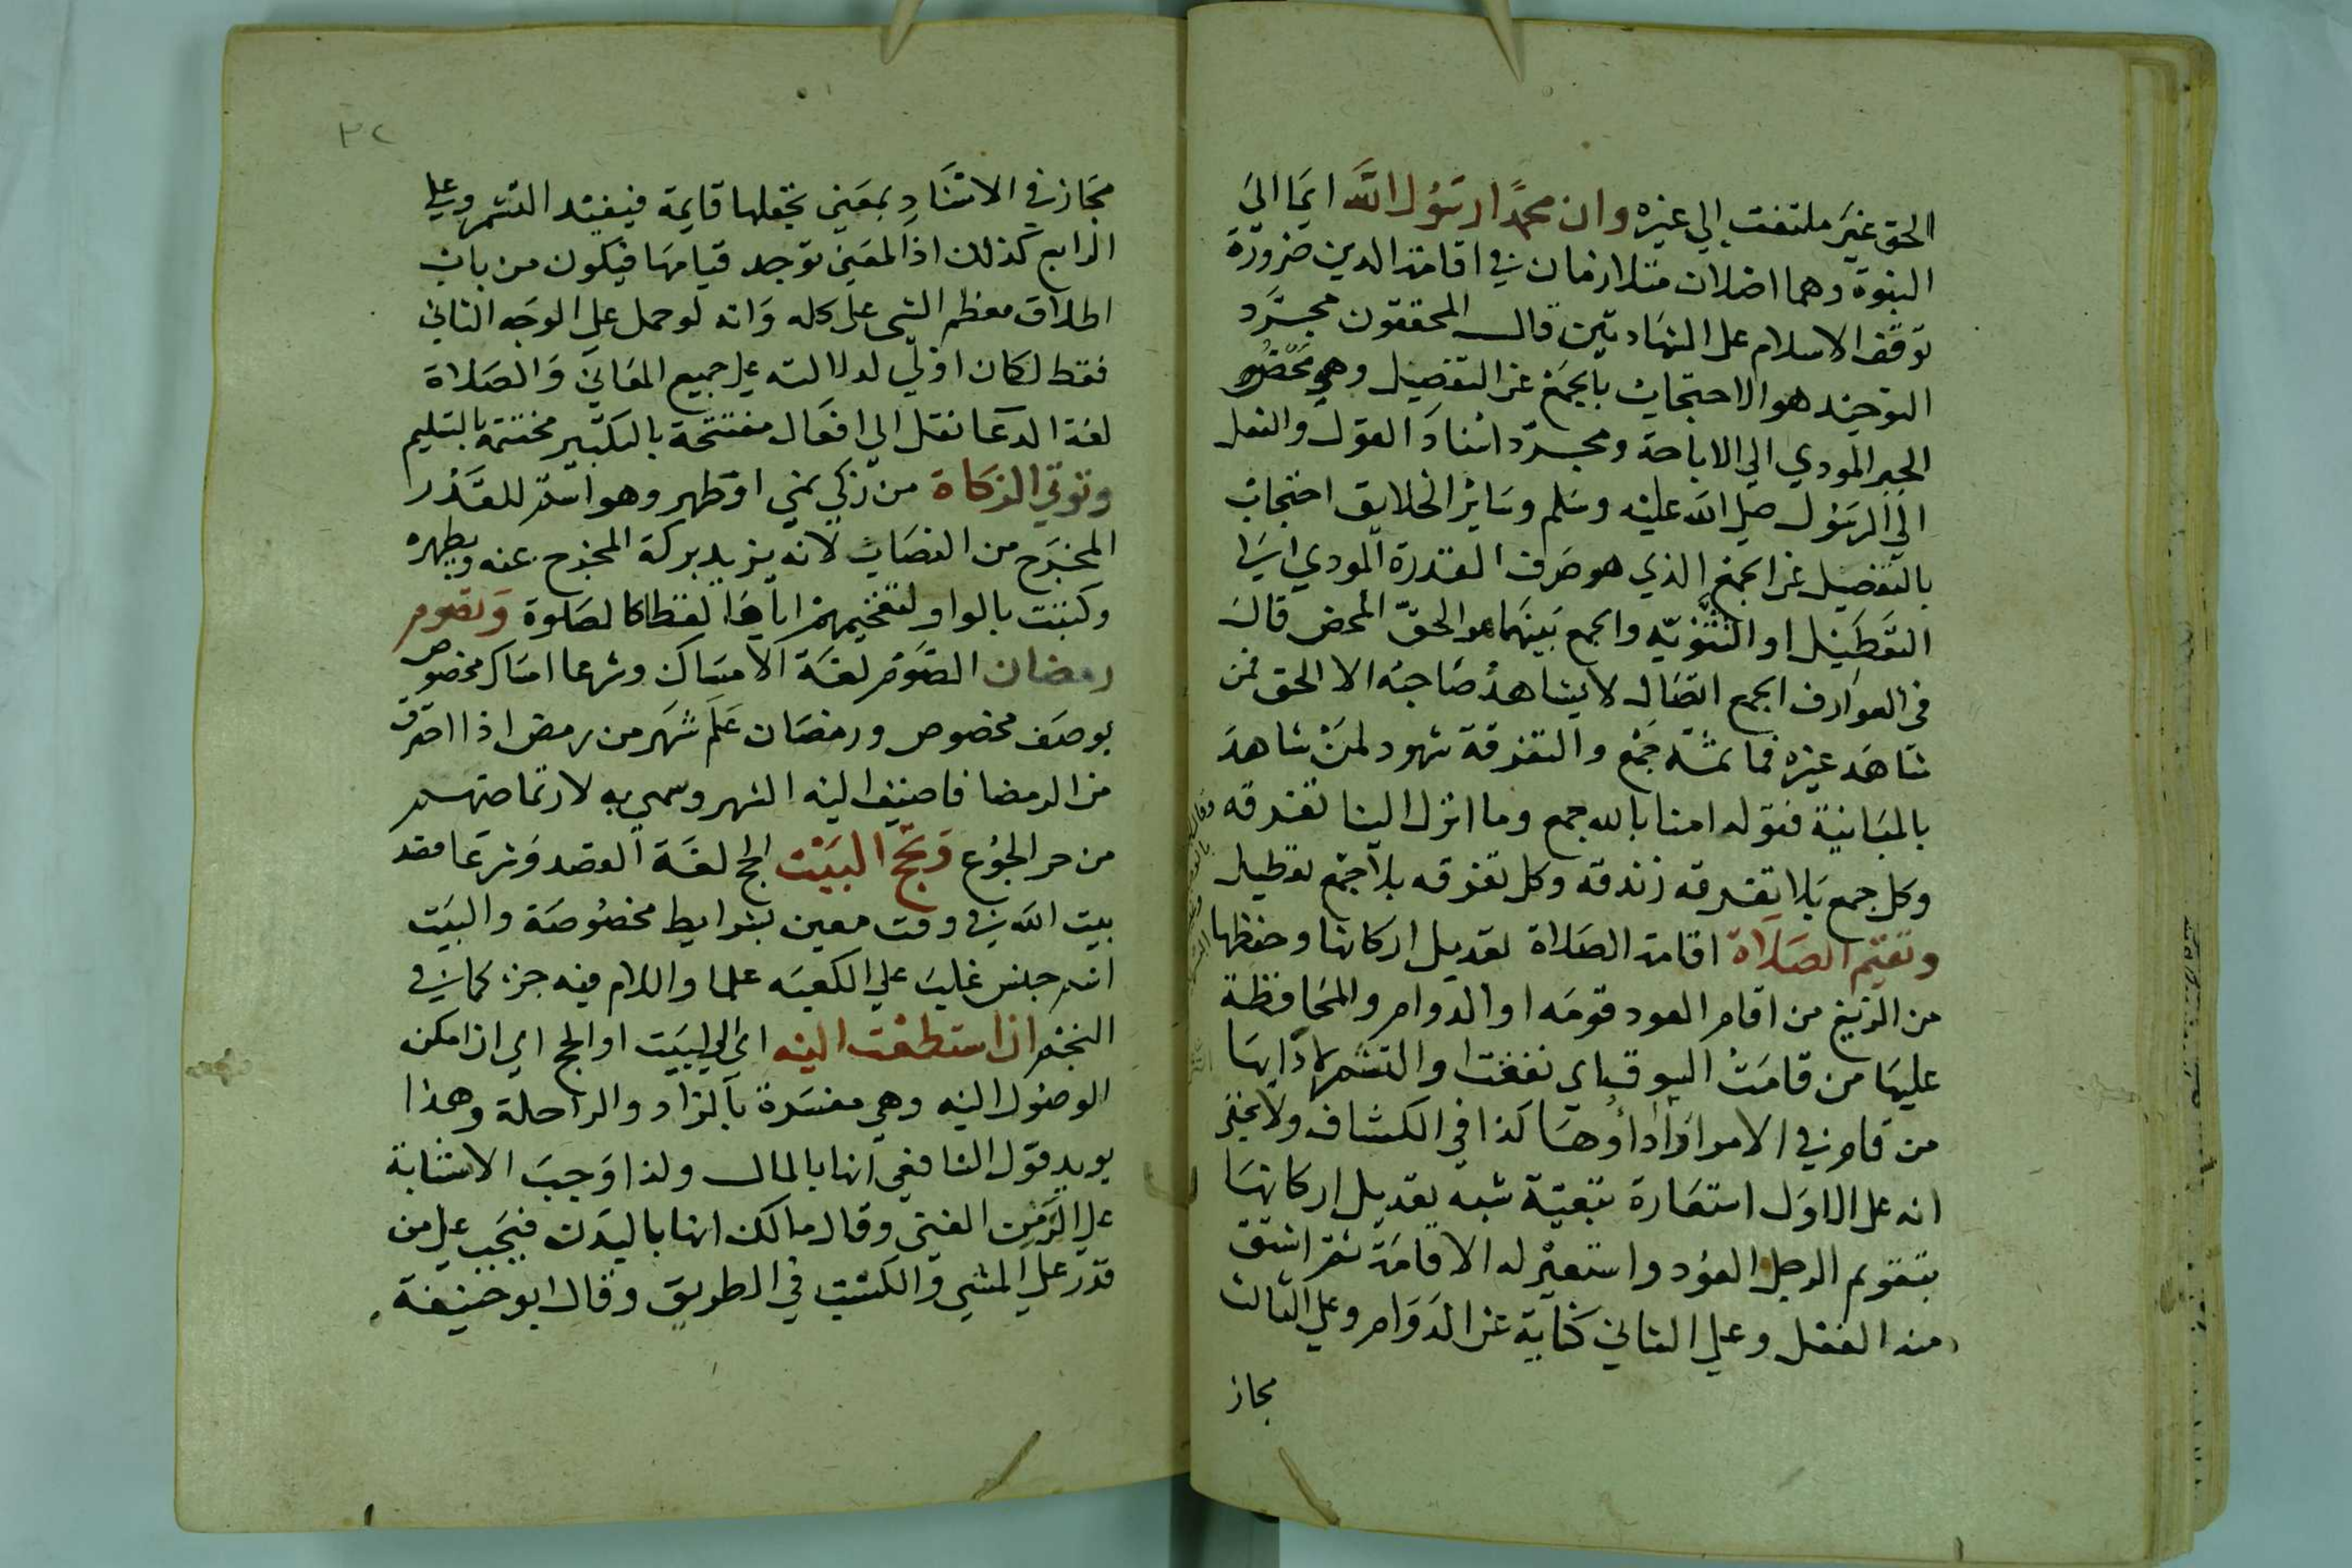 الحق غير ملتفت الي غيره وان محمدًا رسول الله ايما الي
النبوة وهما اصلان متلازمان في اقامة الدين ضرورة
توقف الاسلام على الشهادتين قال المحققون مجرد
التوحيد هو الاحتجاب بالجمع عن التفصيل وهو محض
الجبر المودي الي الاباحة ومجرد اسناد القول والفعل
الي الرسول صلي الله عليه وسلم وسائر الخلايق احتجاب
بالتفصيل عن الجمع الذي هو صرف القدرة المودي الي
التعطيل او الثنويه والجمع بينهما هو الحق المحض قال
في العوارف الجمع اتصال لا يشاهد صاحبه الا الحق فمن
شاهد غيره فما ثمه جمع والتفرقة شهود لمن شاهد
بالمباينة فقوله امنا بالله جمع وما انزل الينا تفرقه
وكل جمع بلا تفرقه زندقه وكل تفرقه بلا جمع تعطيل
وتقيم الصلاة اقامة الصلاة تعديل اركانها وحفظها
من الزيغ من اقام العود قومه او الدوام والمحافظة
عليها من قامت السوق اي نفقت او التشمر لادايها
من قام في الامر او اداؤها كذا في الكشاف ولا يخفى
انه على الاول استعارة تبعية شبه تعديل اركانها
بتقويم الرجل العود واستعير له الاقامة ثم اشتق
منه الفعل وعلي الثاني كناية عن الدوام وعلي الثالث
مجاز
٣٢
مجاز في الاسناد بمعني تجعلها قايمة فيفيد التشمر وعلي
الرابع كذلك اذ المعني توجد قيامها فيكون من باب
اطلاق معظم الشي على كله وانه لو حمل على الوجه الثاني
فقط لكان اولي لدلالته على جميع المعاني والصلاة
لغة الدعا نقل الي افعال مفتتحة بالتكبير مختتمة بالتسليم
وتوتي الزكاة من زكي بمني او طهر وهو اسم للقدر
المخرج من النصاب لانه يزيد بركة المخرج عنه ويطهره
وكتبت بالواو لتفخيمهم اياها لفظا كالصلوة وتصوم
رمضان الصوم لغة الامساك وشرعا امساك مخصوص
بوصف مخصوص ورمضان علم شهر من رمض اذا احترق
من الرمضا فاضيف اليه الشهر وسمي به لارتماضهم
من حر الجوع وتحج البيت الحج لغة القصد وشرعا قصد
بيت الله في وقت معين بشرايط مخصوصة والبيت
اسم جنس غلب علي الكعبه علما واللام فيه جزء كما في
النجم ان استطعت اليه اي الي البيت او الحج اي ان امكن
الوصول اليه وهي مفسرة بالزاد والراحلة وهذا
يويد قول الشافعي انها بالمال ولذا وجب الاستنابة
علي الزمن الغني وقال مالك انها بالبدن فيجب علي من
قدر على المشي والكسب في الطريق وقال ابو حنيفة